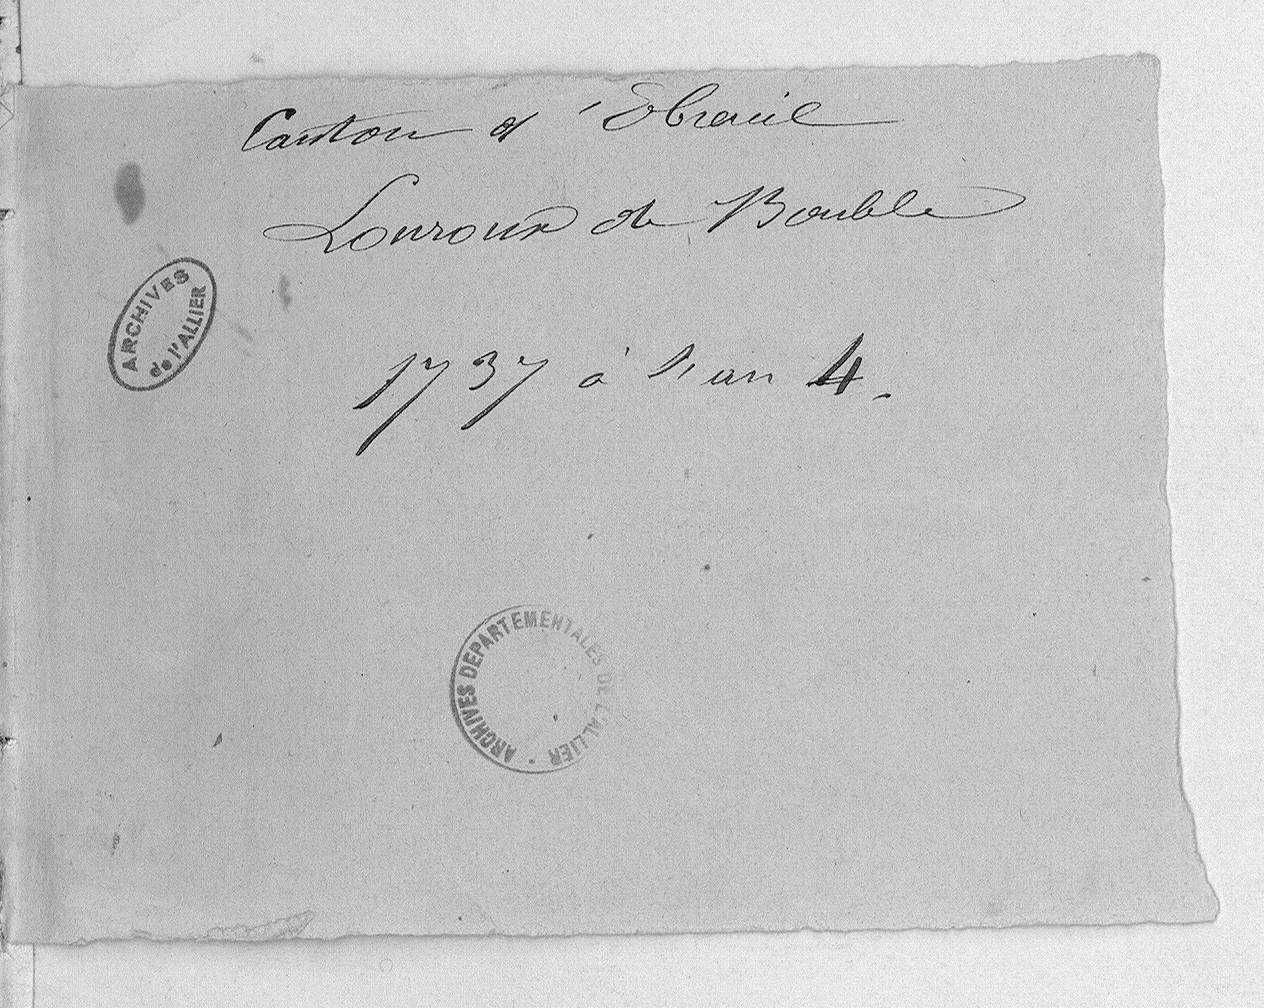 Canton d'Ebreuil
Louroux de Bouble
ARCHIVES
de l'ALLIER
1737 à l'an 4.
ARCHIVES DEPARTEMENTALES DE L'ALLIER